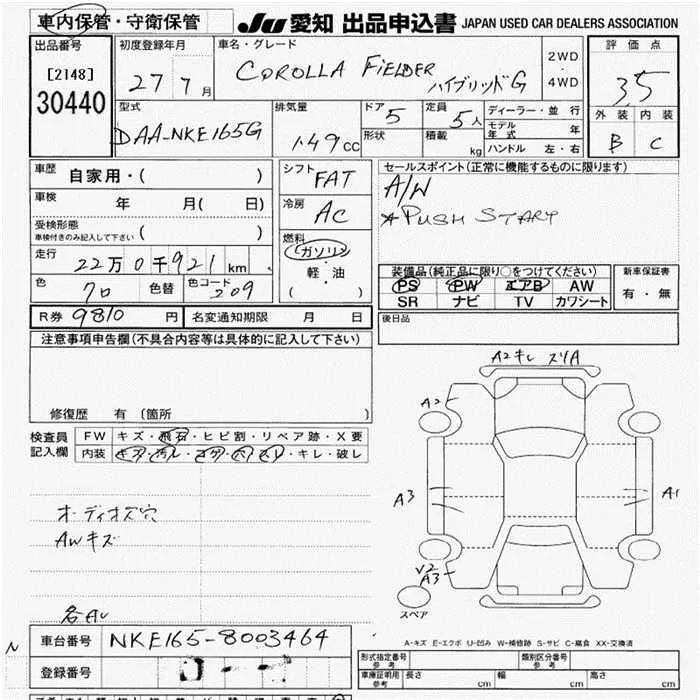 車内保管・守衛保管
JU 愛知 出品申込書 JAPAN USED CAR DEALERS ASSOCIATION
出品番号
[2148]
30440
初度登録年月
27 7月
車名・グレード
COROLLA FIELDER ハイブリッドG
2WD・4WD
評価点
3.5
外装 内装
B C
型式
DAA-NKE165G
排気量
1.49cc
ドア 5
形状
定員 5人
積載 kg
ディーラー・並行
モデル年式 年
ハンドル 左・右
車歴 自家用・( )
車検 年 月( 日)
受検形態 ( )
車検付きのみ記入して下さい
走行 22万0千921km
色 クロ 色替 色コード 209
R券 9810円 名変通知期限 月 日
シフト FAT
冷房 AC
燃料
ガソリン
軽・油
( )
セールスポイント(正常に機能するものに限ります)
A/W
*PUSH START
装備品(純正品に限り○をつけてください)
PS PW エアB AW
SR ナビ TV カワシート
新車保証書
有・無
後日品
注意事項申告欄(不具合内容等は具体的に記入して下さい)
修復歴 有(箇所 )
検査員記入欄
FW キズ・飛石・ヒビ割・リペア跡・X要
内装 キズ・汚レ・コゲ・穴・スレ・キレ・破レ
オーディオズ穴
AWキズ
A2キレ スリA
A2
A3
A1
V2
A3
スペア
A-キズ E-エクボ U-凹み W-補修跡 S-サビ C-腐食 XX-交換済
車台番号 NKE165-8003464
登録番号
型式指定番号 参考
類別区分番号 参考
車庫証明用 参考 長さ cm 幅 cm 高さ cm
N